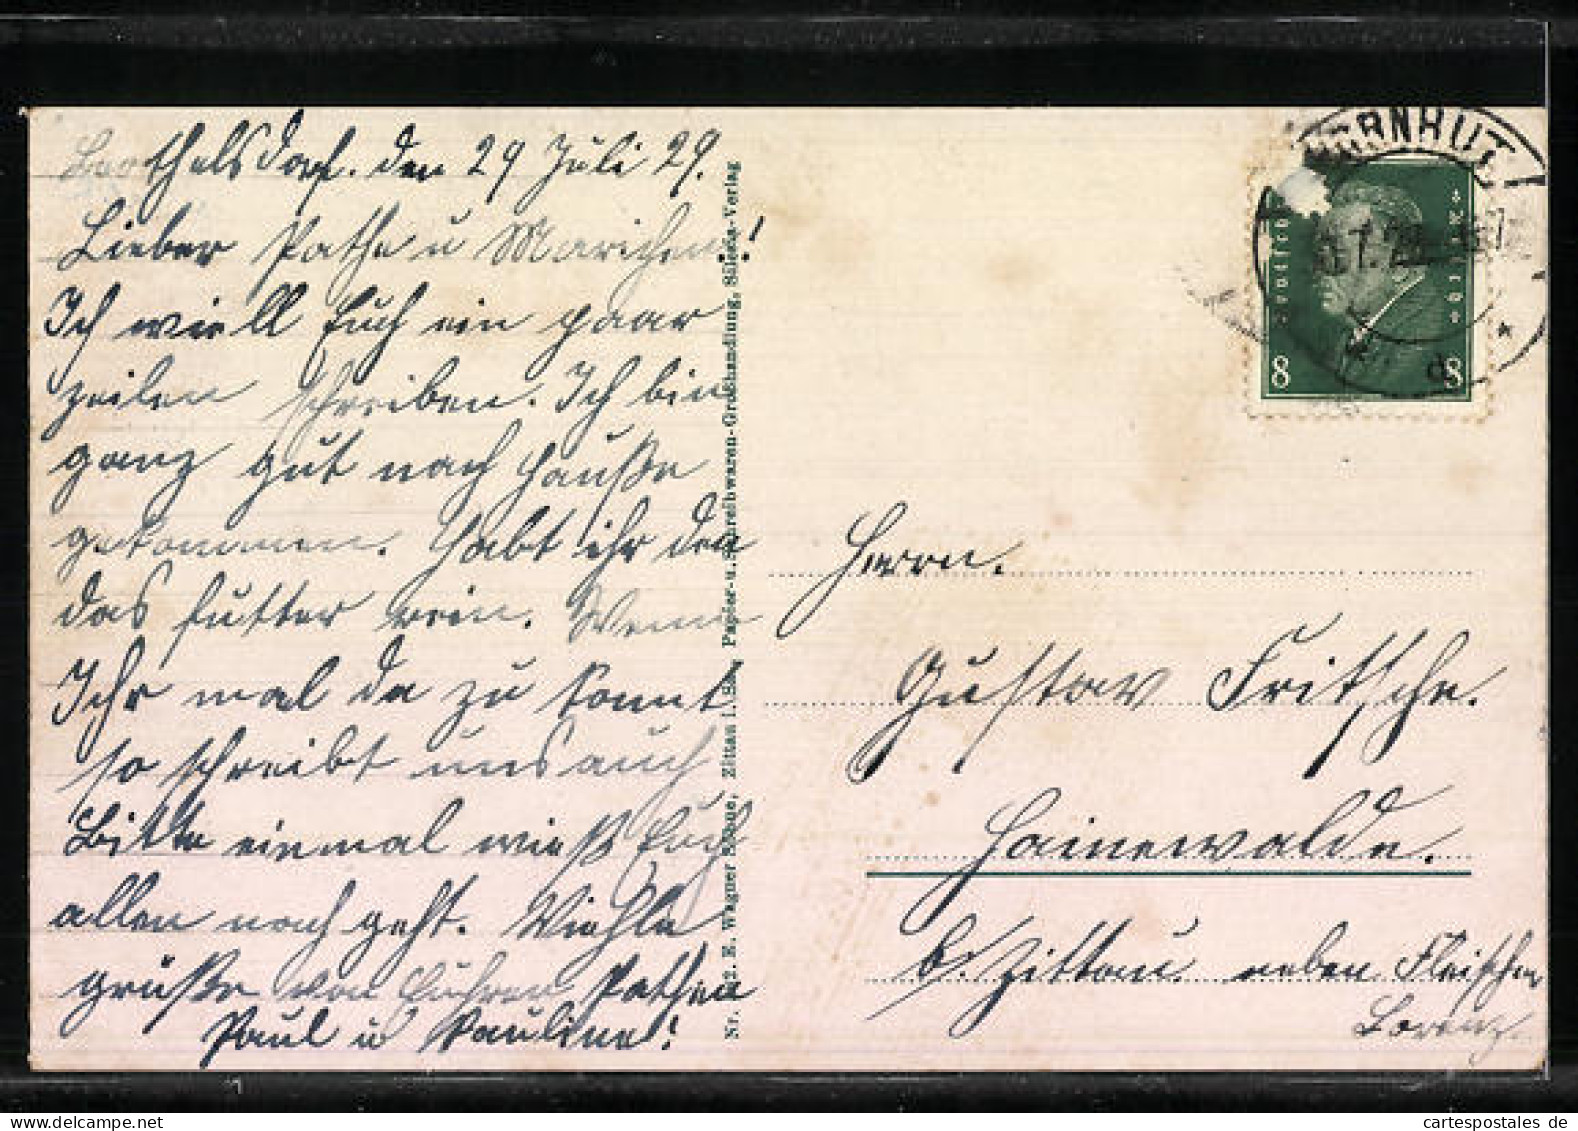 Berthelsdorf. den 29 Juli 29.
Lieber Pathe u Mariechen!
Ich wiell Euch ein paar
zeilen schreiben. Ich bin
ganz gut nach Hauße
gekommen. Habt ihr den
das futter rein. Wenn
Ihr mal da zu konnt
so schreibt uns auch
Bitte einmal wieß Euch
allen noch geht. Viehle
grüße von Euhren Pathen
Paul u Pauline!
Nr. 32. E. Wagner Söhne, Zittau i. Sa., Papier- u. Schreibwaren-Großhandlung, Silesia-Verlag
HERRNHUT
8 8
Herrn.
Gustav Fritsche.
Hainewalde.
b. Zittau neben Fleischer
Lorenz.
cartespostales.de